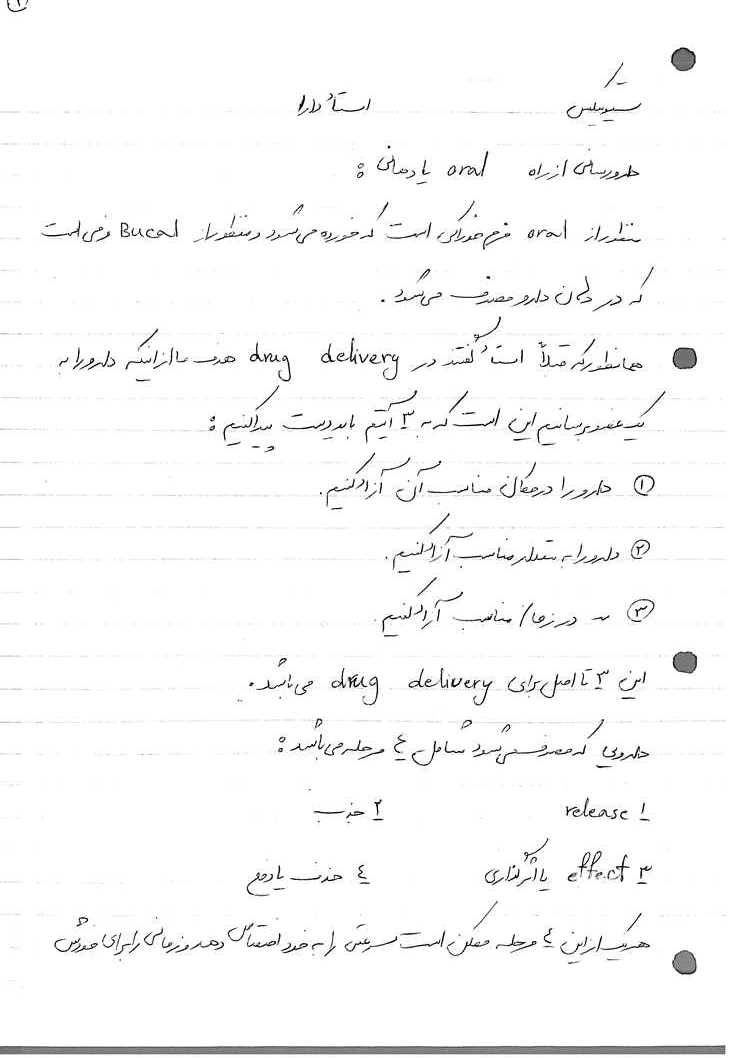 ۱
استاد دارا
دارورسانی از راه oral یا دهانی :
منظور از oral فرم خوراکی است که خورده می‌شود و منظور از Bucal فرمی است
که در دهان دارو مصرف می‌شود .
همانطور که قبلاً استاد گفتند در drug delivery هدف ما از اینکه دارو را به
یک عضو برسانیم این است که به ۳ آیتم باید دست پیدا کنیم :
① دارو را در مکان مناسب آن آزاد کنیم.
② دارو را به مقدار مناسب آزاد کنیم.
③ ~ در زمان مناسب آزاد کنیم.
این ۳ تا اصل برای drug delivery می‌باشد.
دارویی که مصرف می‌شود شامل ٤ مرحله می‌باشد :
۱ release ۲ جذب
۳ effect یا اثرگذاری ٤ حذف یا دفع
هر یک از این ٤ مرحله ممکن است سرعتی را به خود اختصاص دهد و زمانی را برای خودش